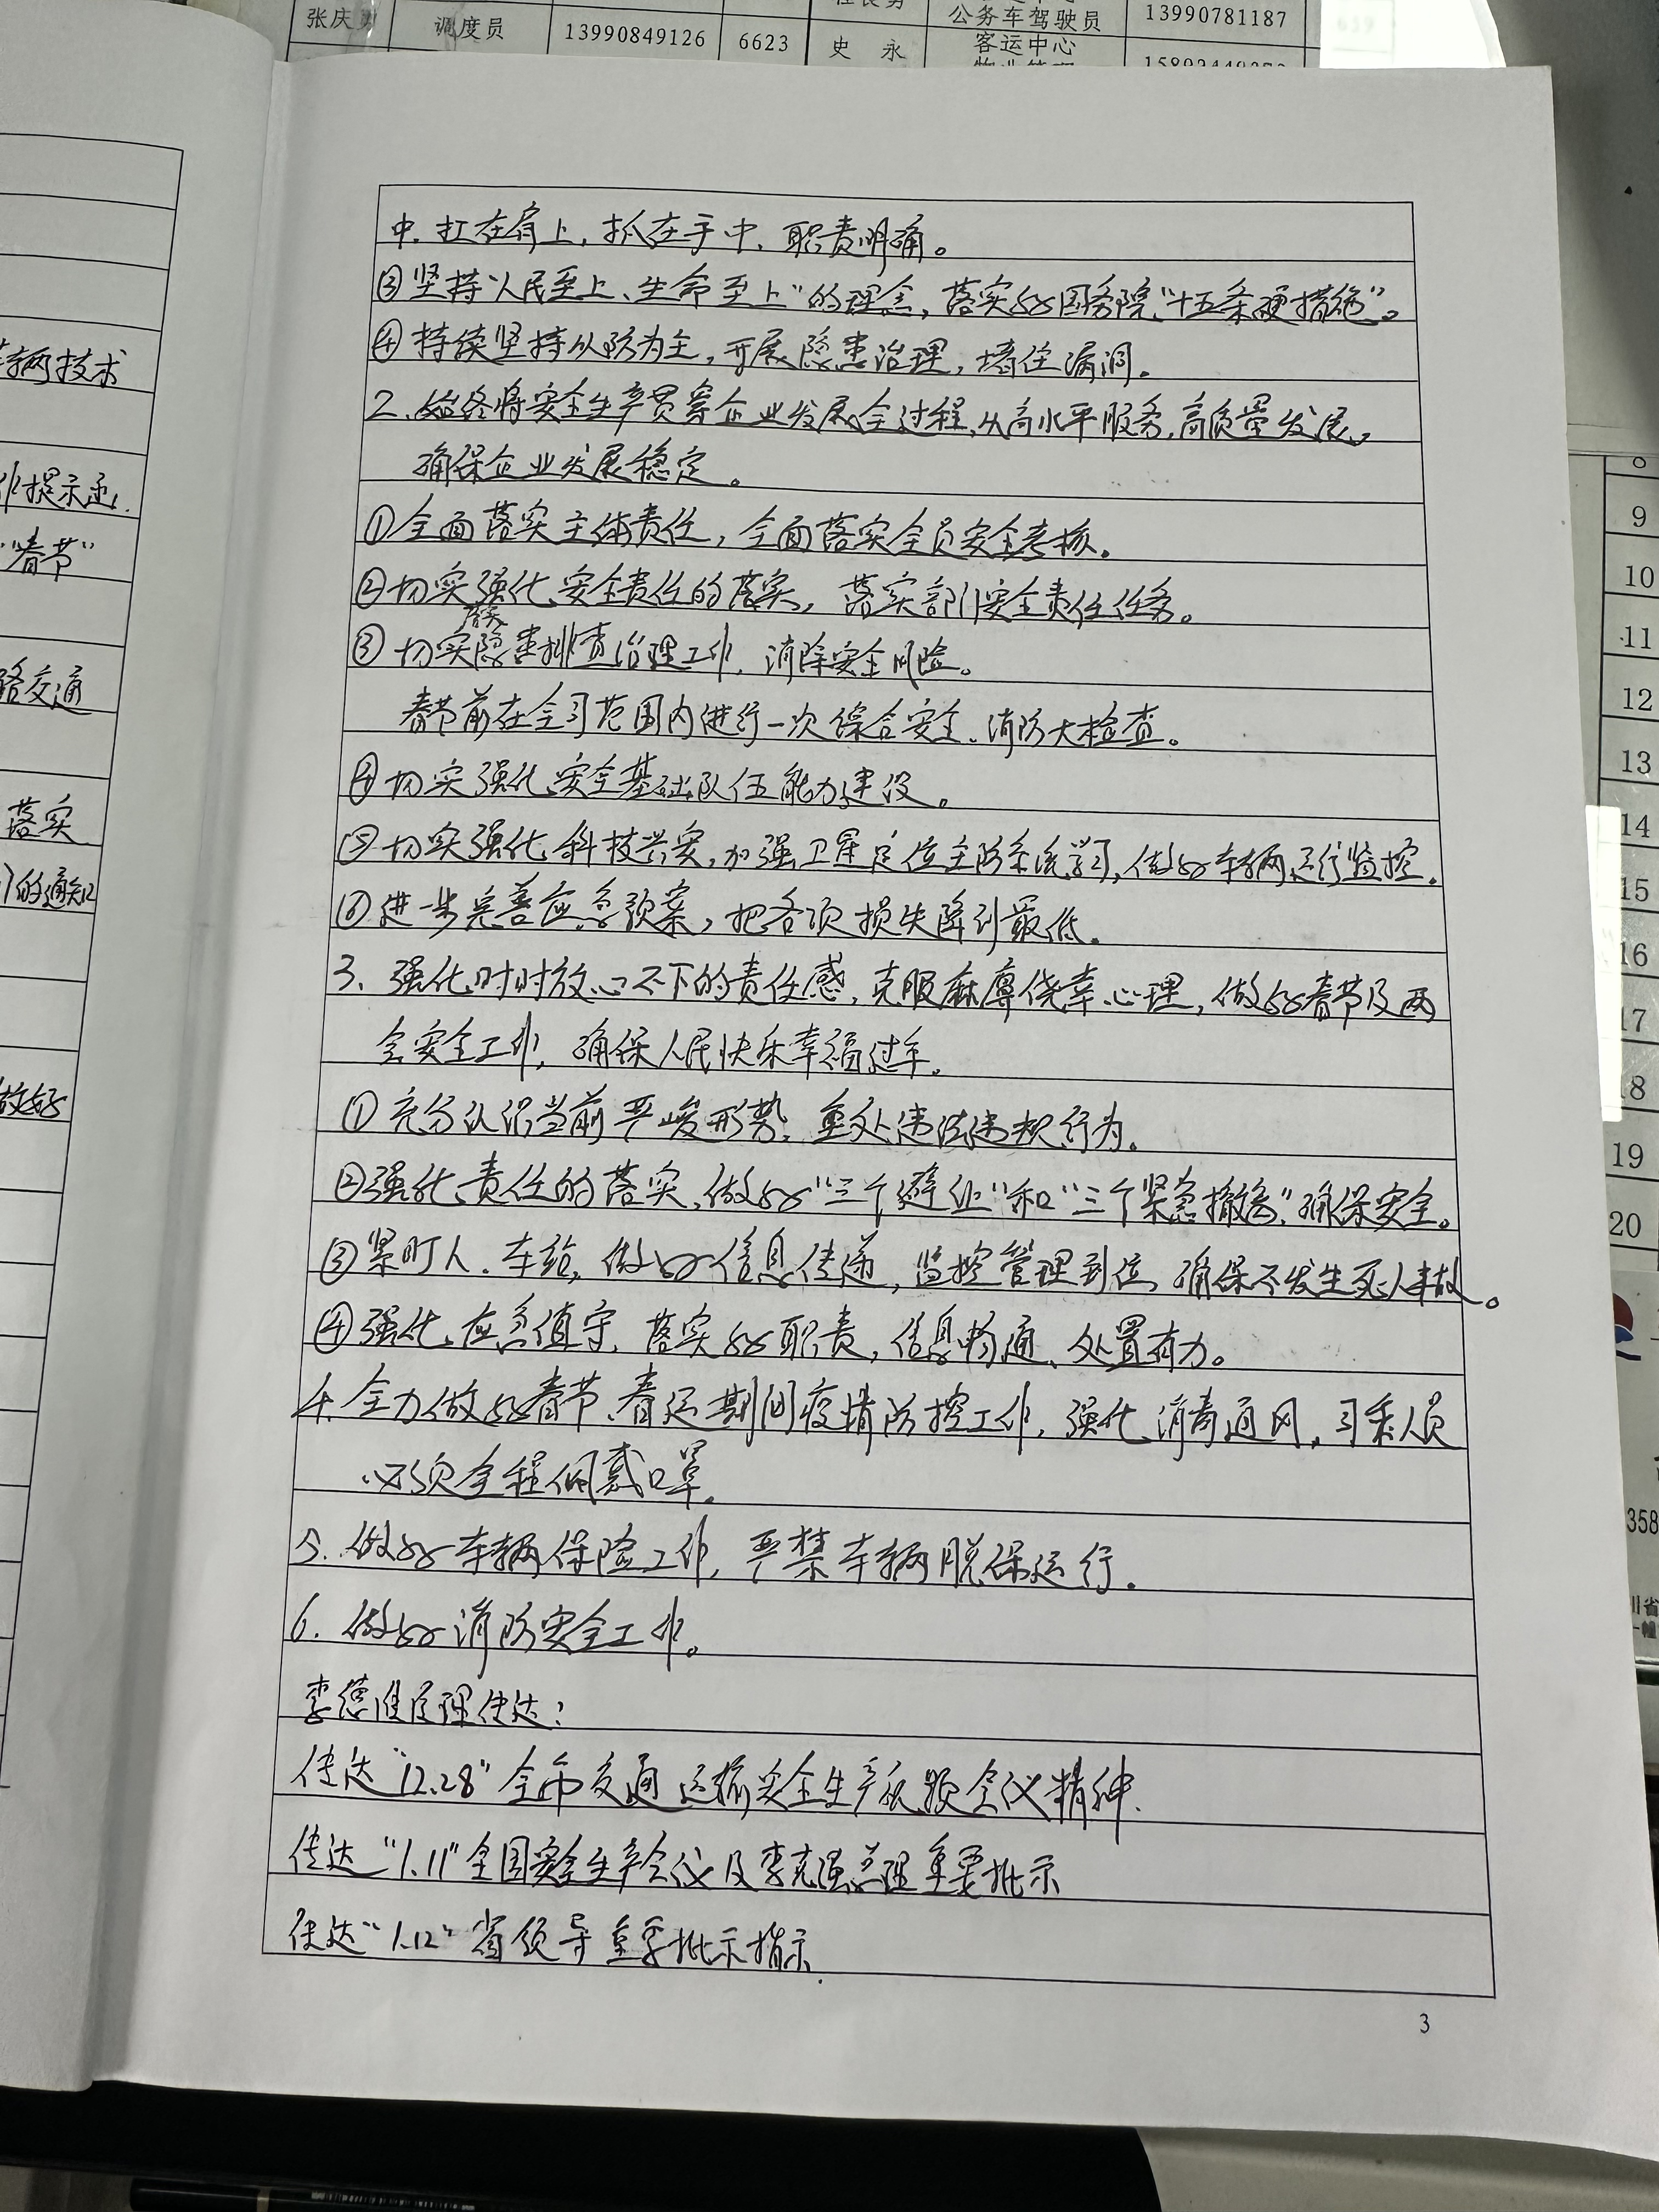 张庆 调度员 13990849126 6623
公务车驾驶员 13990781187
史 永 客运中心
辆技术
提示函.
"春节"
路交通
落实
的通知
做好
中.扛在肩上,抓在手中,职责明确。
③坚持"人民至上、生命至上"的理念,落实好国务院"十五条硬措施"。
④持续坚持以防为主,开展隐患治理,堵住漏洞.
2.始终将安全生产贯穿企业发展全过程,从高水平服务,高质量发展,
确保企业发展稳定。
①全面落实主体责任,全面落实全员安全考核.
②切实强化安全责任的落实,落实部门安全责任任务。
③切实落实隐患排查治理工作,消除安全风险。
春节前在全司范围内进行一次综合安全、消防大检查。
④切实强化安全基础队伍能力建设。
⑤切实强化科技兴安,加强卫星定位主防系统学习,做好车辆运行监控.
⑥进一步完善应急预案,把各项损失降到最低.
3.强化时时放心不下的责任感,克服麻痹侥幸心理,做好春节及两
会安全工作,确保人民快乐幸福过年.
①充分认识当前严峻形势,重处违法违规行为.
②强化责任的落实,做好"三个避让"和"三个紧急撤离",确保安全。
③紧盯人.车站,做好信息传递,监控管理到位,确保不发生死人事故。
④强化应急值守,落实好职责,信息畅通、处置有力。
4.全力做好春节、春运期间疫情防控工作,强化消毒通风,司乘人员
必须全程佩戴口罩.
5.做好车辆保险工作,严禁车辆脱保运行.
6.做好消防安全工作。
李德 经理传达:
传达"12.28"全市交通运输安全生产视频会议精神.
传达"1.11"全国安全生产会议及李克强总理重要批示
传达"1.12"省领导重要批示指示
3
9
10
11
12
13
14
15
16
17
18
19
20
358
川省